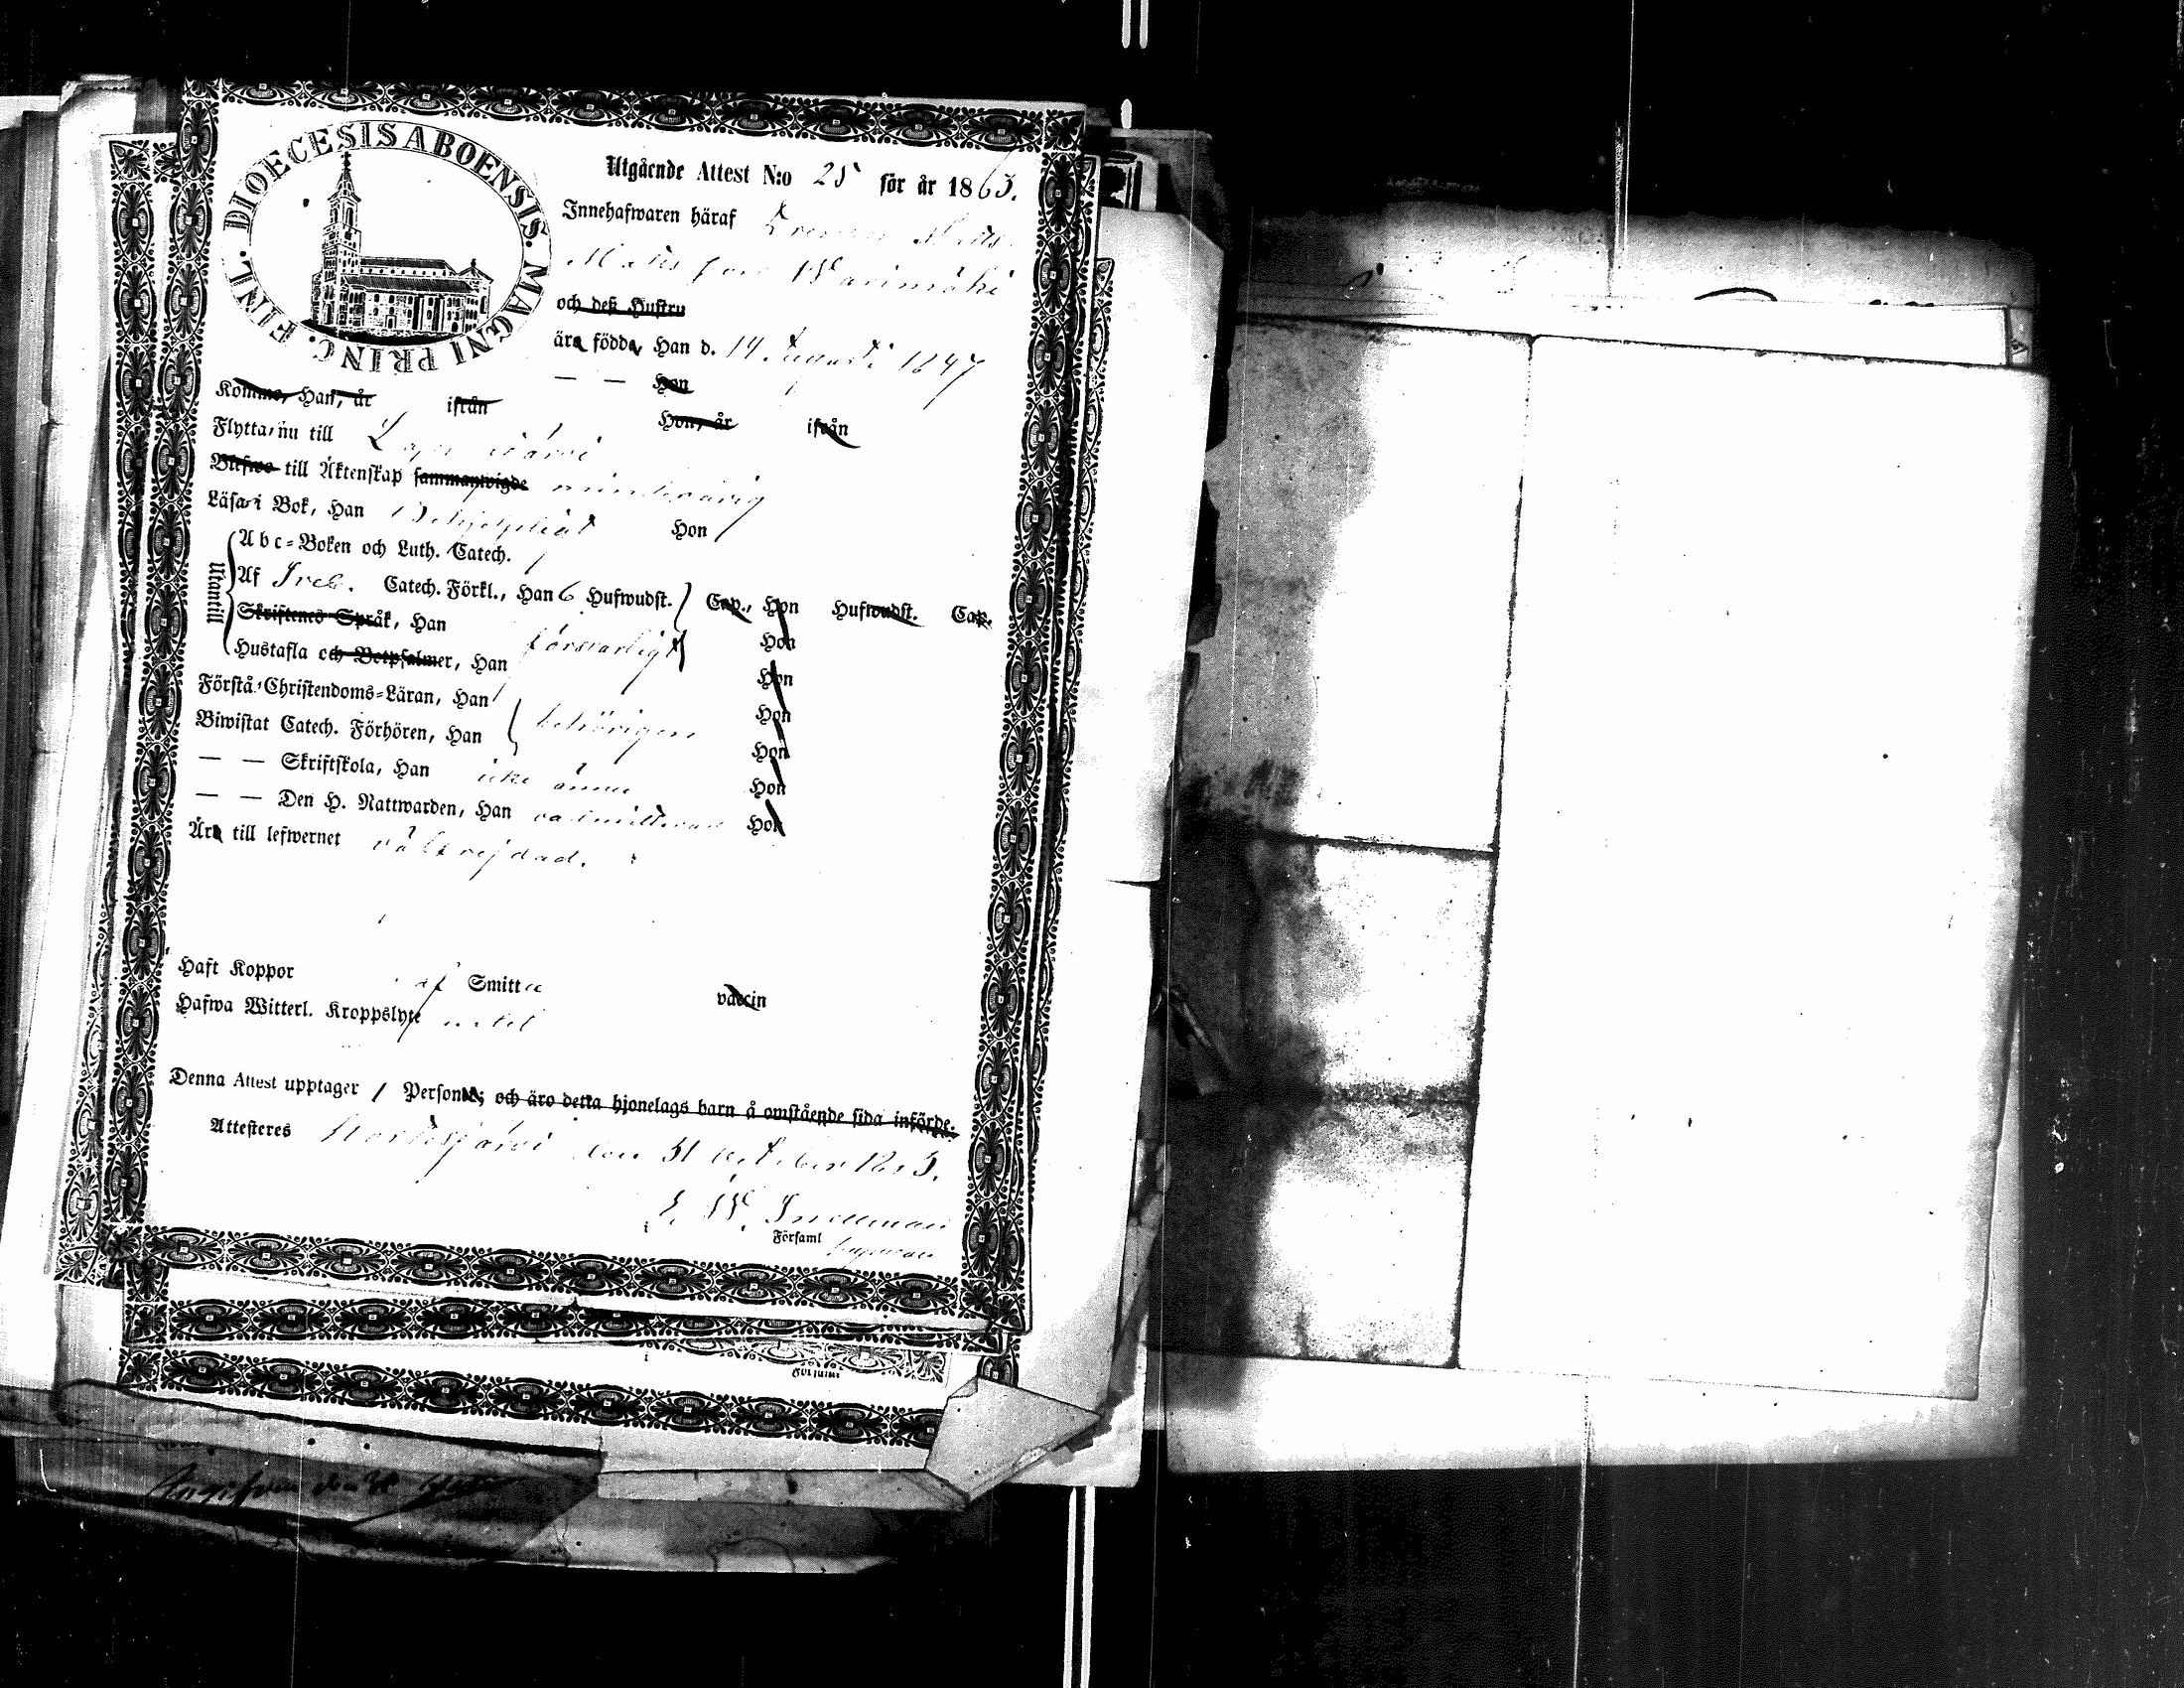 DIOECESIS ABOENSIS. MAGNI PRINC. FINL.
Utgående Attest N:o 25 för år 1863.
Innehafwaren häraf Matts
Matts son Warimäki
och deß Hustru
äro födda, Han d. 14 Augusti 1847
— — Hon
Komne, Han, år ifrån Hon, år ifrån
Flytta nu till Lappajärvi
Blefwo till Äktenskap sammanwigde minderårig
Läsa i Bok, Han Behjelpligt Hon
Utantill
Abc-Boken och Luth. Catech.
Af Sveb. Catech. Förkl., Han 6 Hufwudst. Cap., Hon Hufwudst. Cap.
Skriftenes Språk, Han försvarligt Hon
Hustafla och Botpsalmer, Han Hon
Förstå Christendoms-Läran, Han Hon
Biwistat Catech. Förhören, Han behörigen Hon
— — Skriftskola, Han icke ännu Hon
— — Den H. Nattwarden, Han oadmitterad Hon
Äro till lefwernet välfrejdad.
Haft Koppor af Smitta vaccin
Hafwa Witterl. Kroppslyte intet
Denna Attest upptager 1 Person; och äro detta hjonelags barn å omstående sida införde.
Attesteres Kortesjärvi den 31 October 1863.
Församl